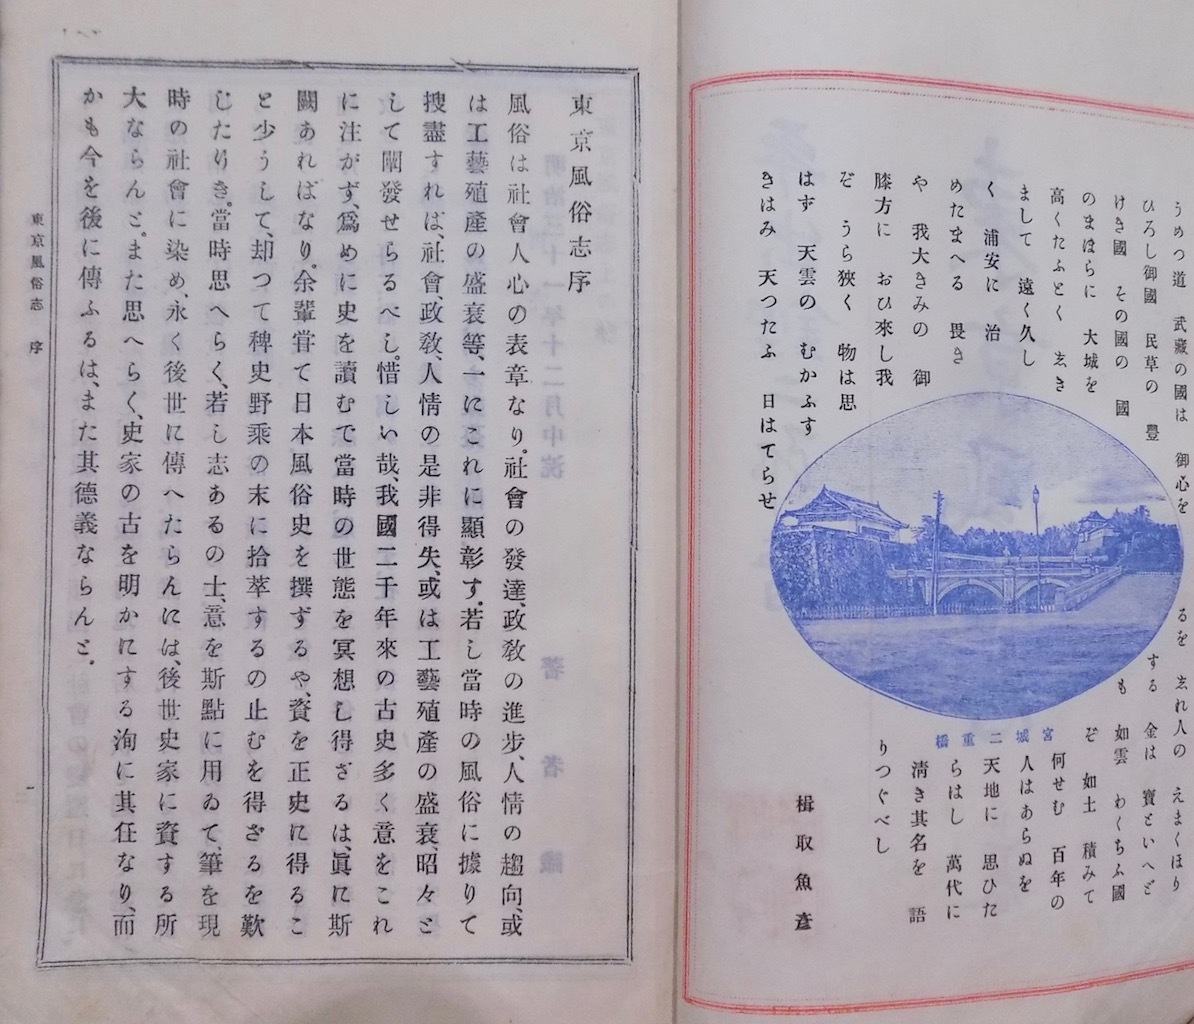 うめつ道 武藏の國は 御心を
ひろし御國 民草の 豐
けき國 その國の 國
のまほらに 大城を
高くたふとく 𛁈き
まして 遠く久し
く 浦安に 治
めたまへる 畏き
や 我大きみの 御
膝方に おひ來し我
ぞ うら狹く 物は思
はず 天雲の むかふす
きはみ 天つたふ 日はてらせ
るを 𛁈れ人の えまくほり
する 金は 寶といへど
も 如雲 わくちふ國
ぞ 如土 積みて
何せむ 百年の
人はあらぬを
天地に 思ひた
らはし 萬代に
淸き其名を 語
りつぐべし
楫取魚彥
宮城二重橋
東京風俗志序
風俗は社會人心の表章なり。社會の發達、政敎の進步、人情の趨向、或
は工藝殖產の盛衰等、一にこれに顯彰す。若し當時の風俗に據りて
搜盡すれば、社會、政敎、人情の是非得失、或は工藝殖產の盛衰、昭々と
して闡發せらるべし。惜しい哉、我國二千年來の古史多く意をこれ
に注がず、爲めに史を讀むで當時の世態を冥想し得ざるは、眞に斯
闕あればなり。余輩甞て日本風俗史を撰ずるや、資を正史に得るこ
と少うして、却つて稗史野乘の末に拾萃するの止むを得ざるを歎
じたりき。當時思へらく、若し志あるの士、意を斯點に用ゐて、筆を現
時の社會に染め、永く後世に傳へたらんには、後世史家に資する所
大ならんと。また思へらく、史家の古を明かにする洵に其任なり、而
かも今を後に傳ふるは、また其德義ならんと。
東京風俗志 序
一